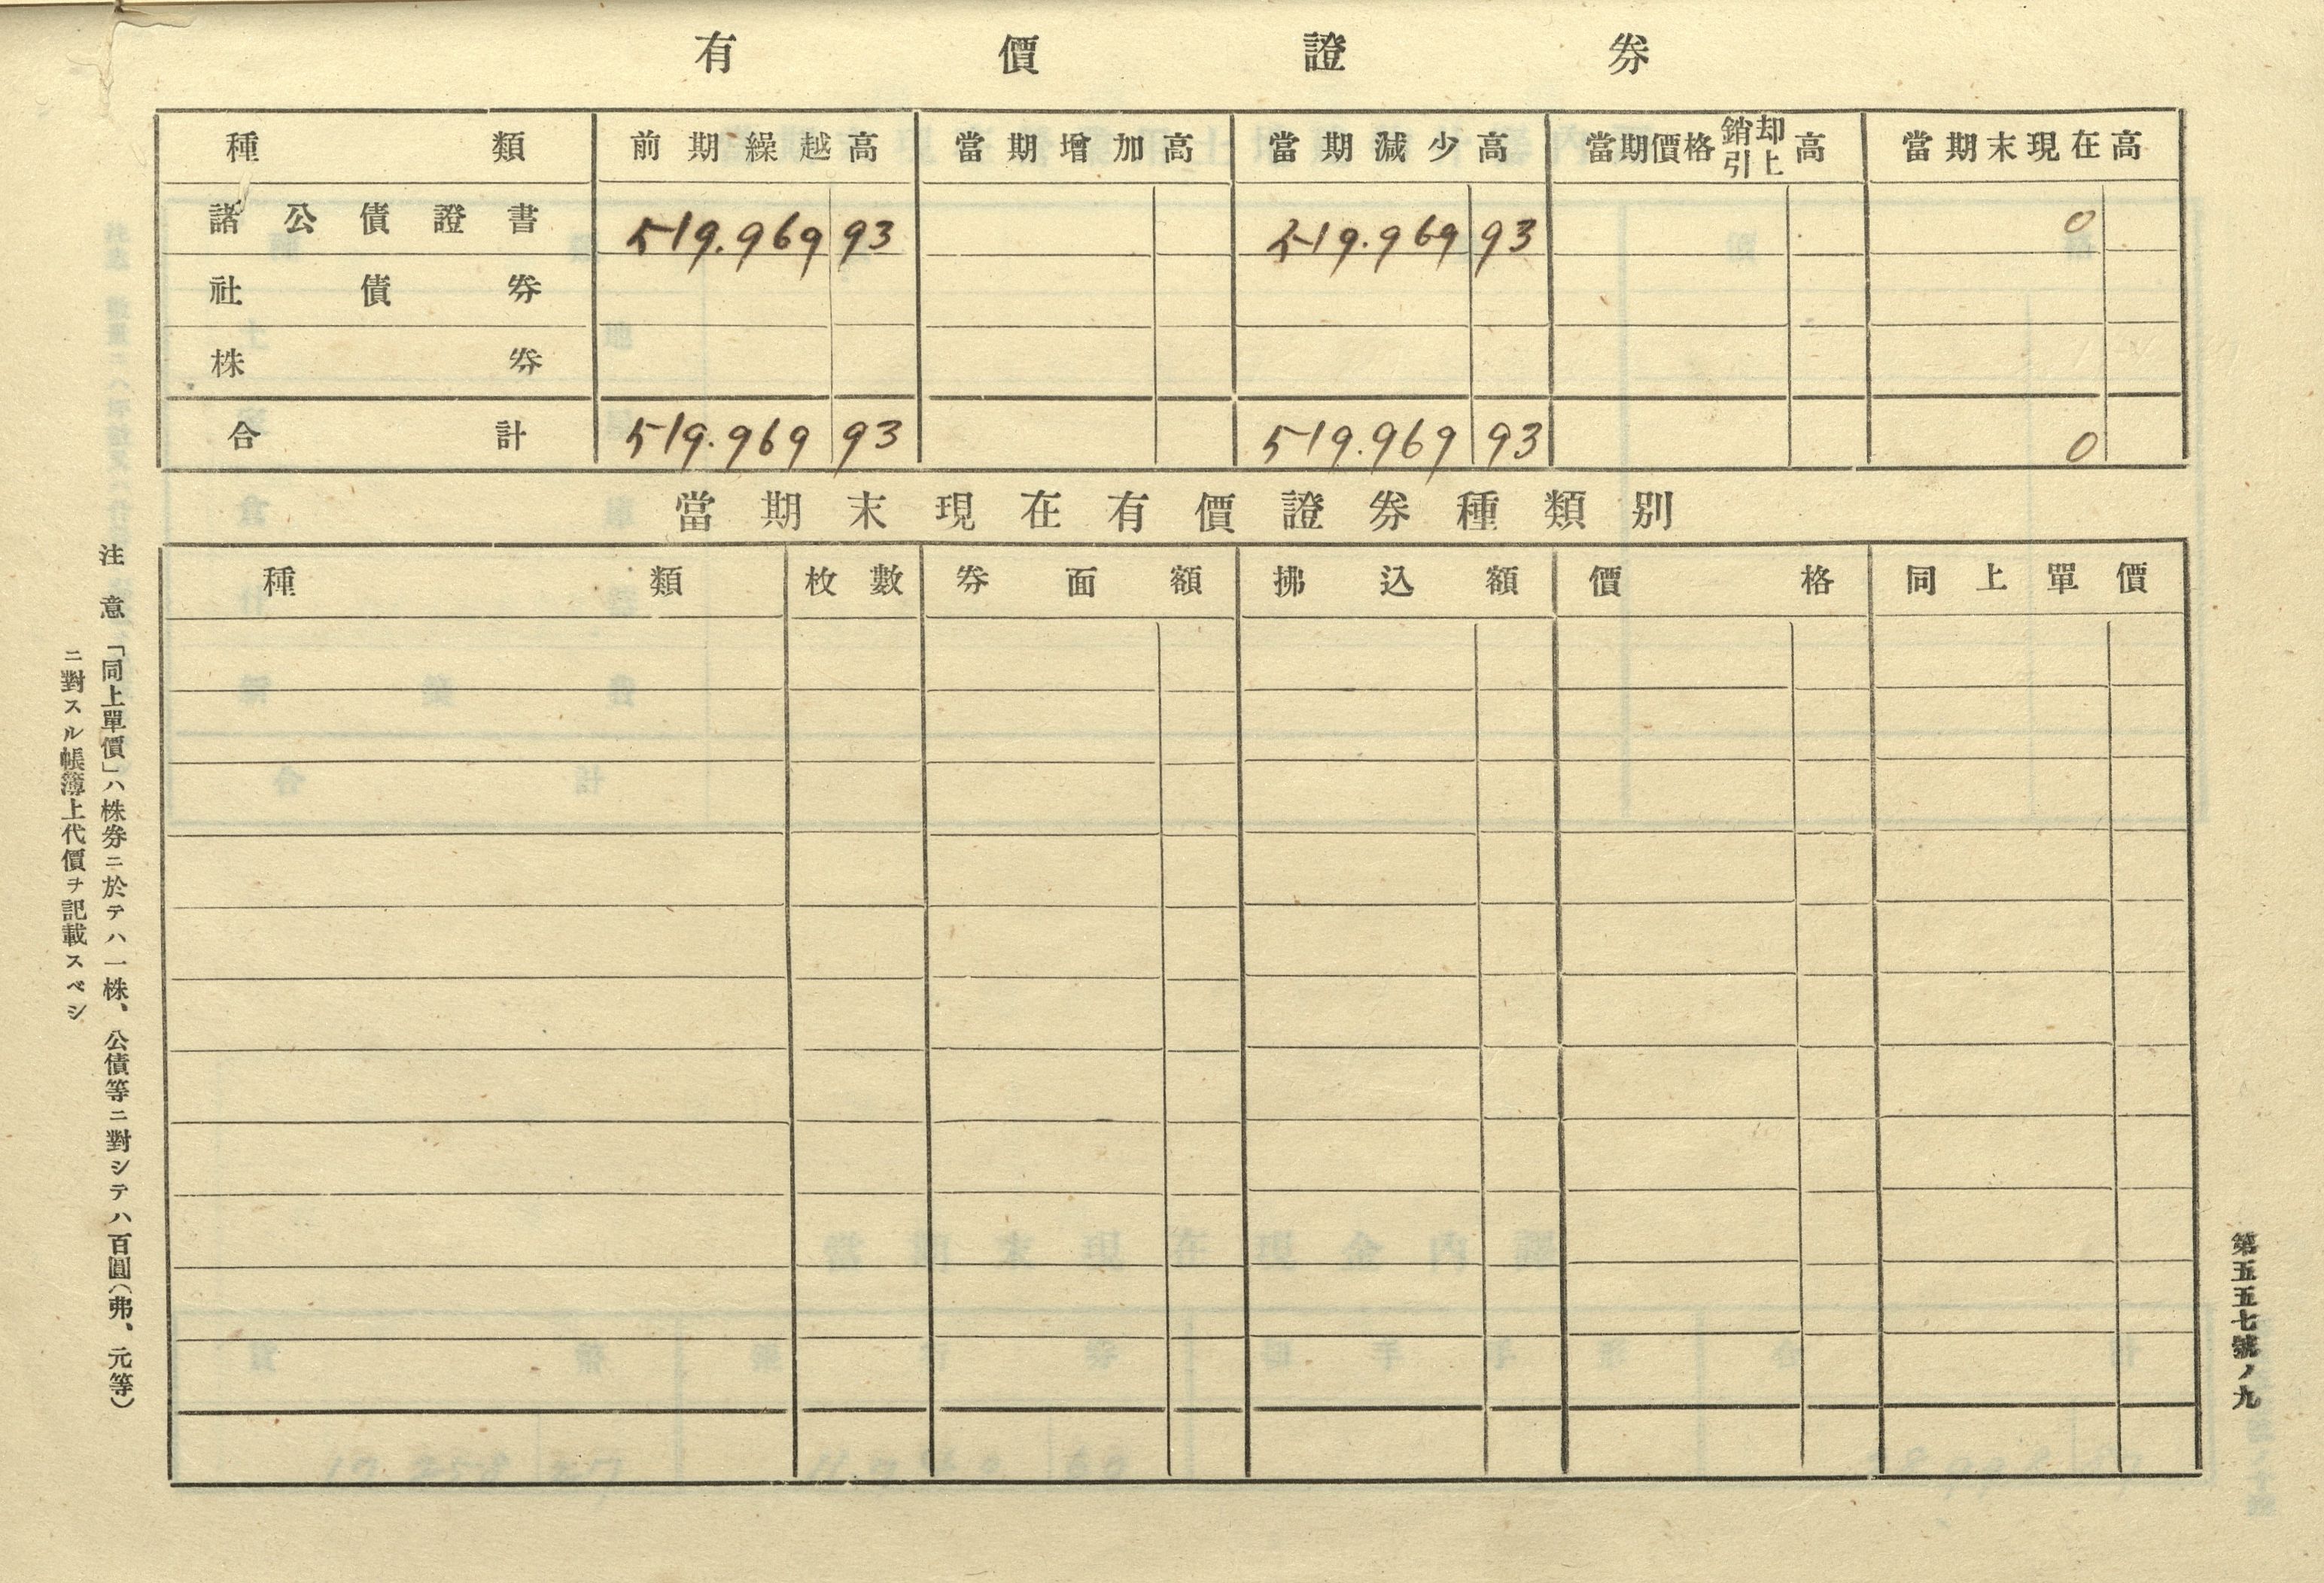 有價證券
種類 前期繰越高 當期增加高 當期減少高 當期價格銷却引上高 當期末現在高
諸公債證書 519.969 93 519.969 93 0
社債券
株券
合計 519.969 93 519.969 93 0
當期末現在有價證券種類別
種類 枚數 券面額 拂込額 價格 同上單價
注意 「同上單價」ハ株券ニ於テハ一株、公債等ニ對シテハ百圓(弗、元等)
ニ對スル帳簿上代價ヲ記載スベシ
第五五七號ノ九